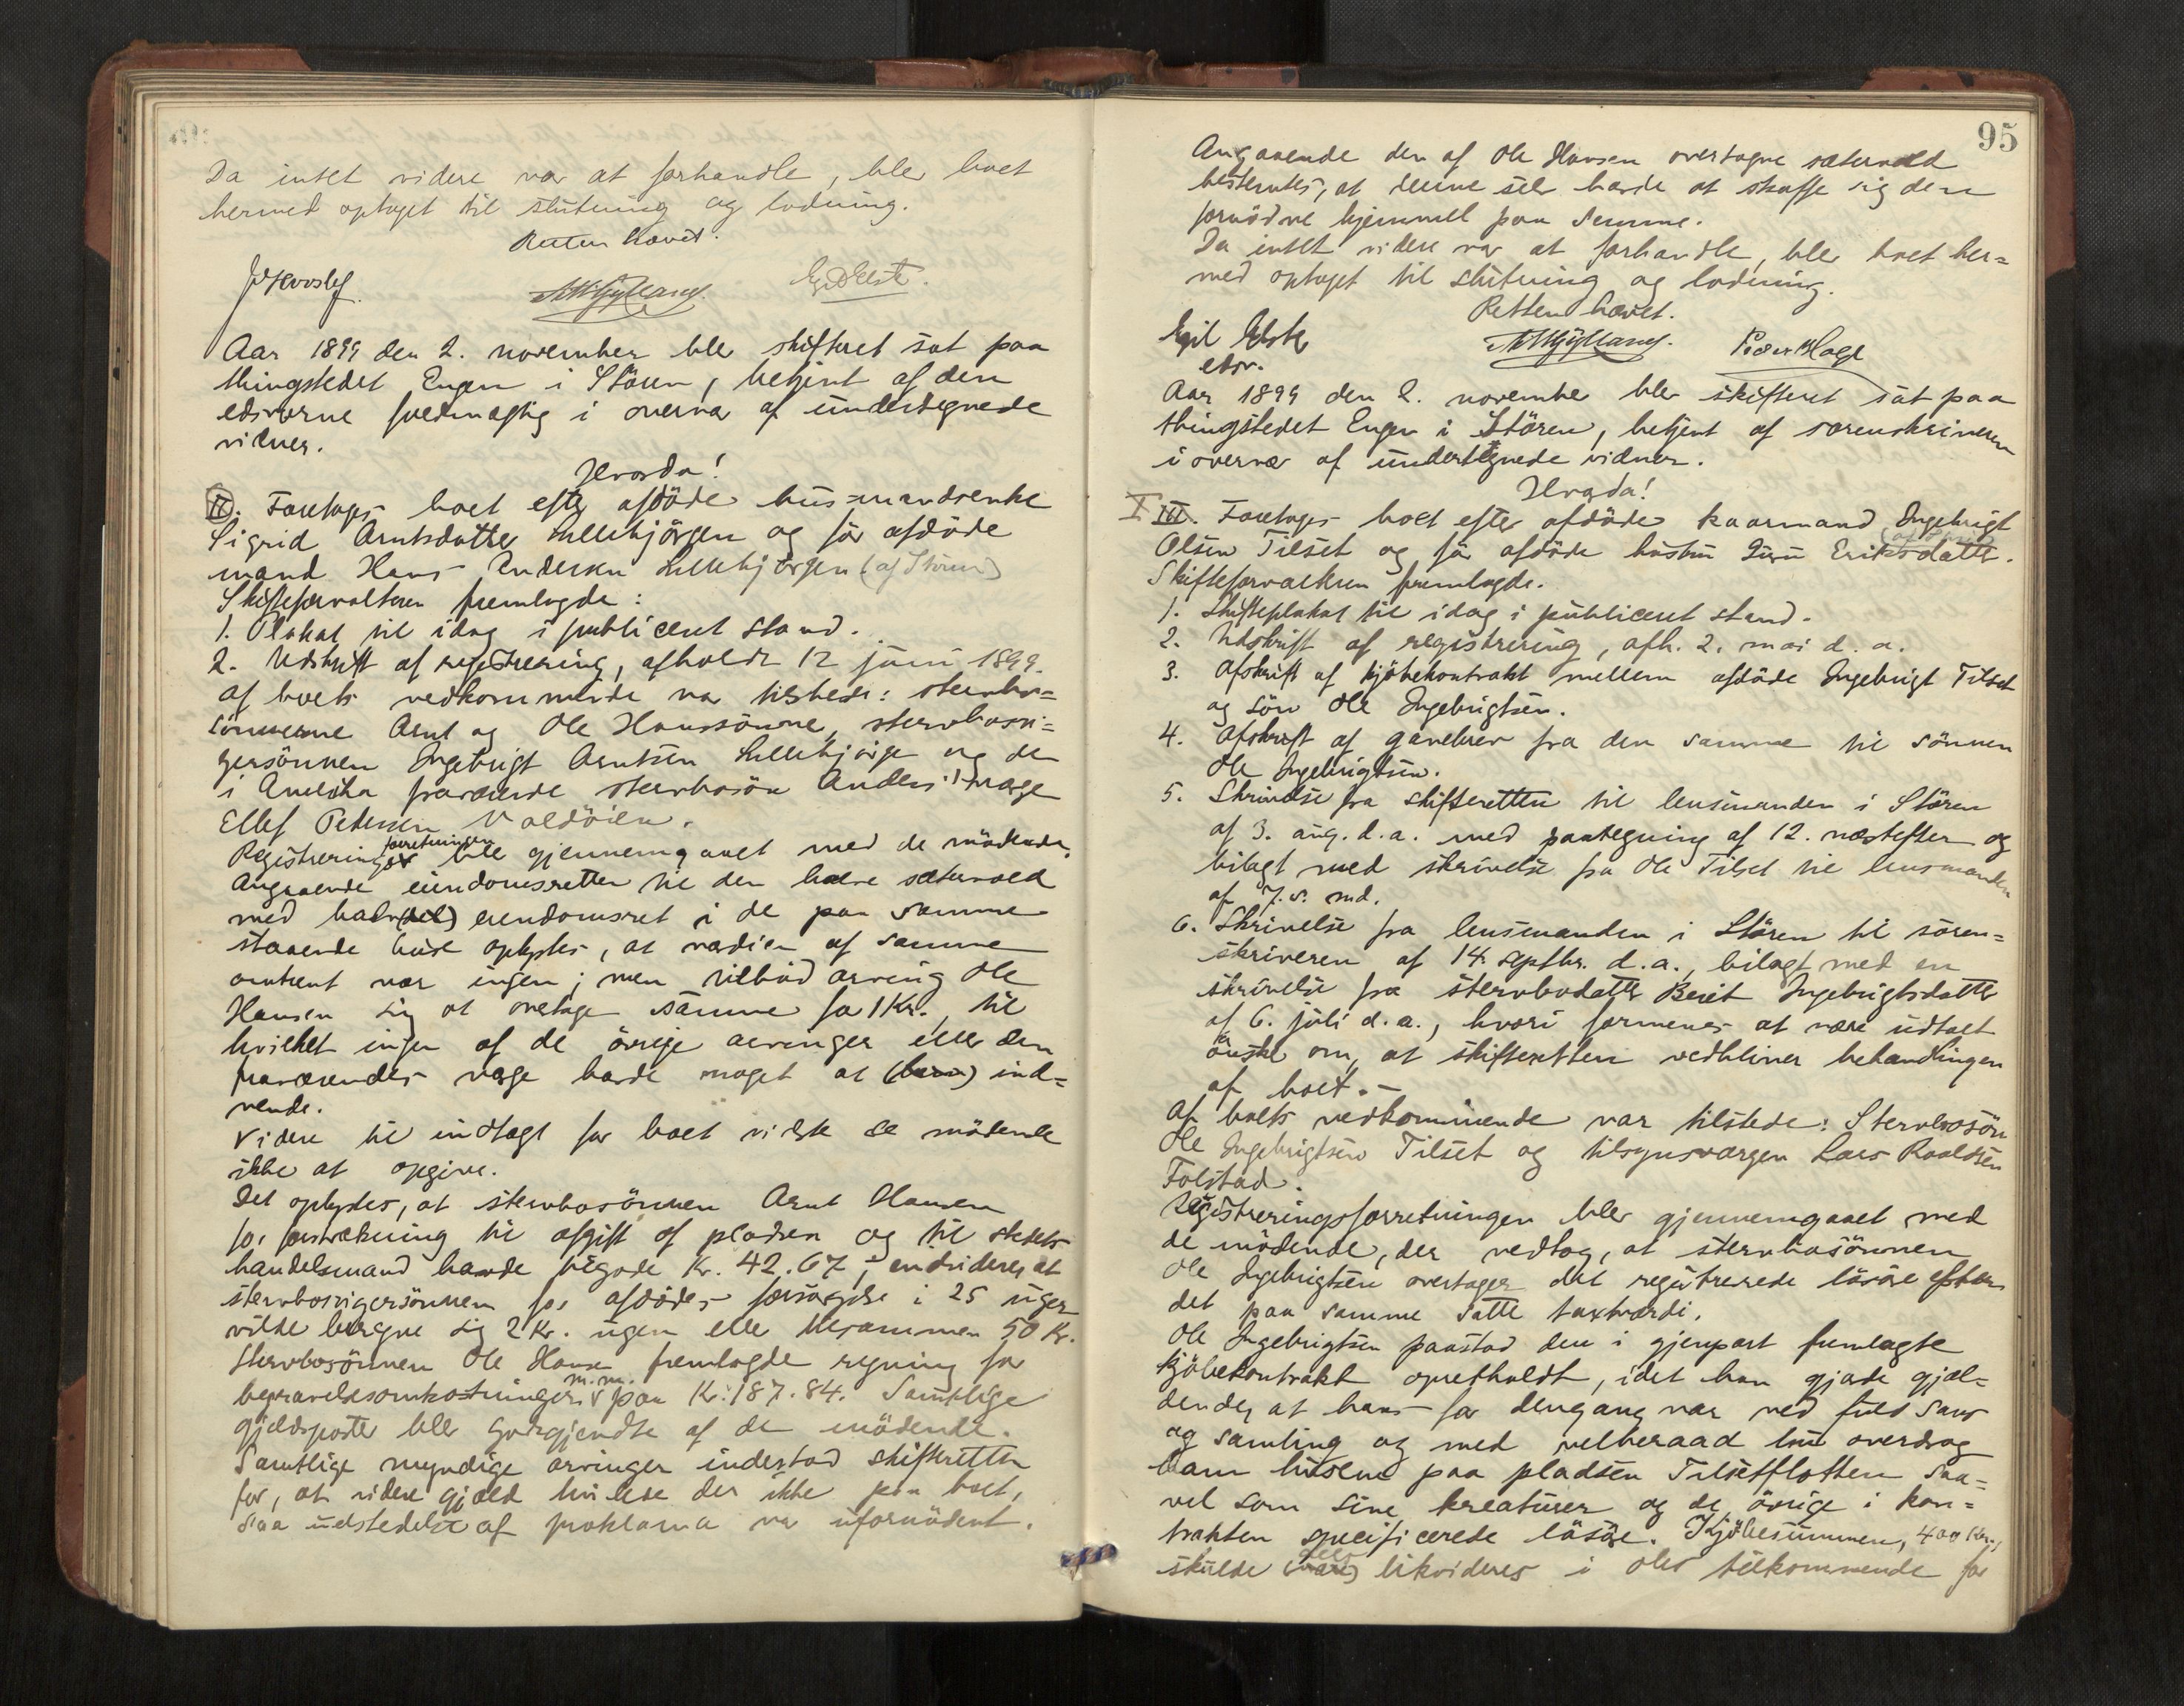 Da intet videre var at forhandle, blev boet
hermed optaget til slutning og lodning.
Retten hævet.
Aar 1899 den 2. november blev skifteret sat paa
thingstedet Engen i Stören, betjent af den
edsvorne fuldmægtig i overvær af undertegnede
vidner.
Hvorda!
II. Foretoges boet efter afdöde husmandsenke
Sigrid Arntsdatter Lillebjörgen og för afdöde
mand Hans Andersen Lillebjörgen (af Stören)
Skifteforvalteren fremlagde:
1. Plakat til idag i publiceret stand.
2. Udskrift af registrering, afholdt 12 juni 1899.
af boets vedkommende var tilstede: stervbo=
sönnerne Arnt og Ole Hanssönner, stervbosvi=
gersönnen Ingebrigt Arntsen Lillebjörge og den
i Amerika fraværende stervbosön Anders' værge
Ellef Petersen Voldöien.
Registreringsforretningen blev gjennemgaaet med de mödende.
Angaaende eiendomsretten til den halve sætervold
med halv(del) eiendomsret i de paa samme
staaende huse oplystes, at værdien af samme
omtrent var ingen; men tilböd arving Ole
Hansen sig at overtage samme for 1 Kr., til
hvilket ingen af de övrige arvinger eller den
fraværendes værge havde noget at ind=
vende.
Videre til indtægt for boet vidste de mödende
ikke at opgive.
Det oplystes, at stervbosönnen Arnt Hansen
for forstrækning til afgift af pladsen og til stedets
handelsmand havde tilgode Kr. 42.67; endvidere at
stervbosvigersönnen for afdödes forsörgelse i 25 uger
vilde beregne sig 2 Kr. ugen eller tilsammen 50 Kr.
Stervbosönnen Ole Hansen fremlagde regning for
begravelsesomkostninger m.m. paa Kr. 187.84. Samtlige
gjeldsposter blev godkjendte af de mödende.
Samtlige myndige arvinger indestod skifteretten
for, at videre gjæld hvilede der ikke paa boet,
saa udstedelse af proklama var ufornödent.
95
Angaaende den af Ole Hansen overtagne sætervold
bestemtes, at denne selv havde at skaffe sig den
fornödne hjemmel paa samme.
Da intet videre var at forhandle, blev boet her=
med optaget til slutning og lodning.
Retten hævet.
Egil Elster
edsv.
Peder Hage
Aar 1899 den 2. november blev skifteret sat paa
thingstedet Engen i Stören, betjent af sorenskriveren
i overvær af undertegnede vidner.
Hvorda!
III. Foretoges boet efter afdöde kaarmand Ingebrigt
Olsen Tilset og för afdöde hustru Guru Eriksdatter. (af Stören)
Skifteforvalteren fremlagde.
1. Skifteplakat til idag i publiceret stand.
2. Udskrift af registrering, afh. 2. mai d. a.
3. Afskrift af kjöbekontrakt mellem afdöde Ingebrigt Tilset
og sön Ole Ingebrigtsen.
4. Afskrift af gavebrev fra den samme til sönnen
Ole Ingebrigtsen.
5. Skrivelse fra skifteretten til lensmanden i Stören
af 3. aug. d.a. med paategning af 12. næstefter og
bilagt med skrivelse fra Ole Tilset til lensmanden
af 7. s. md.
6. Skrivelse fra lensmanden i Stören til soren=
skriveren af 14. septbr. d.a., bilagt med en
skrivelse fra stervbodatter Berit Ingebrigtsdatter
af 6. juli d.a., hvori formenes at være udtalt
önske om, at skifteretten vedbliver behandlingen
af boet.
Af boets vedkommende var tilstede: Stervbosön
Ole Ingebrigtsen Tilset og tilsynsværgen Lars Roaldsen
Folstad.
Registreringsforretningen blev gjennemgaaet med
de mödende, der vedtog, at stervbosönnen
Ole Ingebrigtsen overtager det registrerede lösöre efter
det paa samme satte taxtværdi.
Ole Ingebrigtsen paastod den i gjenpart fremlagte
kjöbekontrakt opretholdt, idet han gjorde gjæl=
dende, at hans far dengang var ved fuld sans
og samling og med velberaad hu overdrog
ham husene paa pladsen Tilsetflotten saa=
vel som sine kreaturer og de övrige i kon=
trakten specificerede lösöre. Kjöbesummen, 400 Kr.,
skulde (være) likvideres i Oles tilkommende for